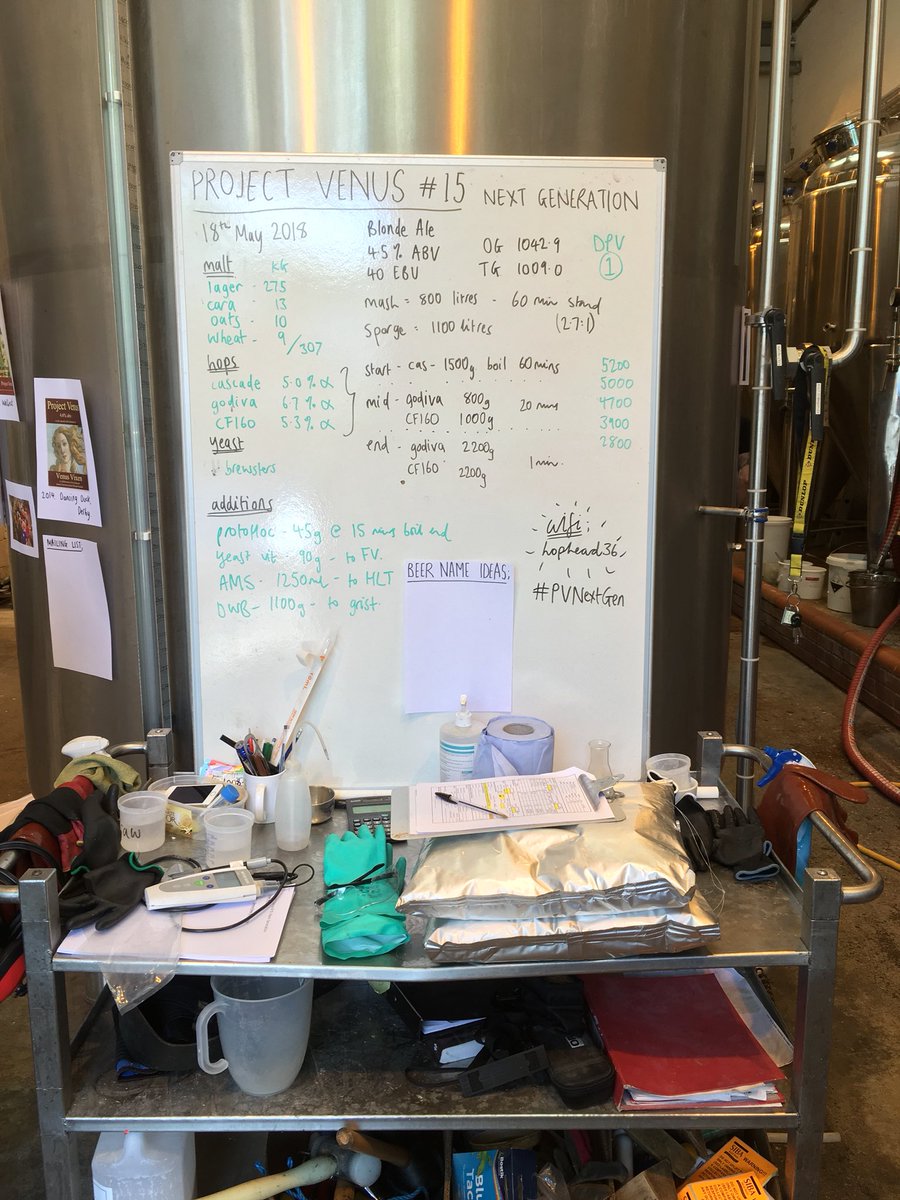 PROJECT VENUS #15 NEXT GENERATION
18th May 2018
malt KG
lager - 275
cara - 13
oats - 10
wheat - 9 /307
hops
cascade 5.0% α
godiva 6.7% α
CF160 5.3% α
yeast
brewsters
additions
protofloc - 45g @ 15 mins boil end
yeast vit - 90g - to FV.
AMS - 1250ml - to HLT
DWB - 1100g - to grist.
Blonde Ale
4.5% ABV OG 1042.9
40 EBU TG 1009.0
DPV
1
mash = 800 litres - 60 min stand
sparge = 1100 litres (2.7:1)
start - cas - 1500g boil 60mins 5200
5000
mid - godiva 800g 20 mins 4700
CF160 1000g 3900
end - godiva 2200g 2800
CF160 2200g 1 min.
wifi:
hophead36
#PVNextGen
BEER NAME IDEAS:
Project Venus
Venus Vixen
2014. Dancing Duck, Derby.
MAILING LIST,